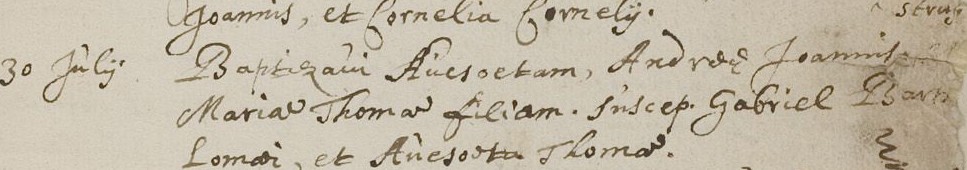 Joannis, et Cornelia Cornelij.
30 Julij Baptizavi Avesoetam, Andreę Joannis
Mariæ Thomæ filiam. suscep. Gabriel Bart
Lomæi, et Avesoeta Thomæ.